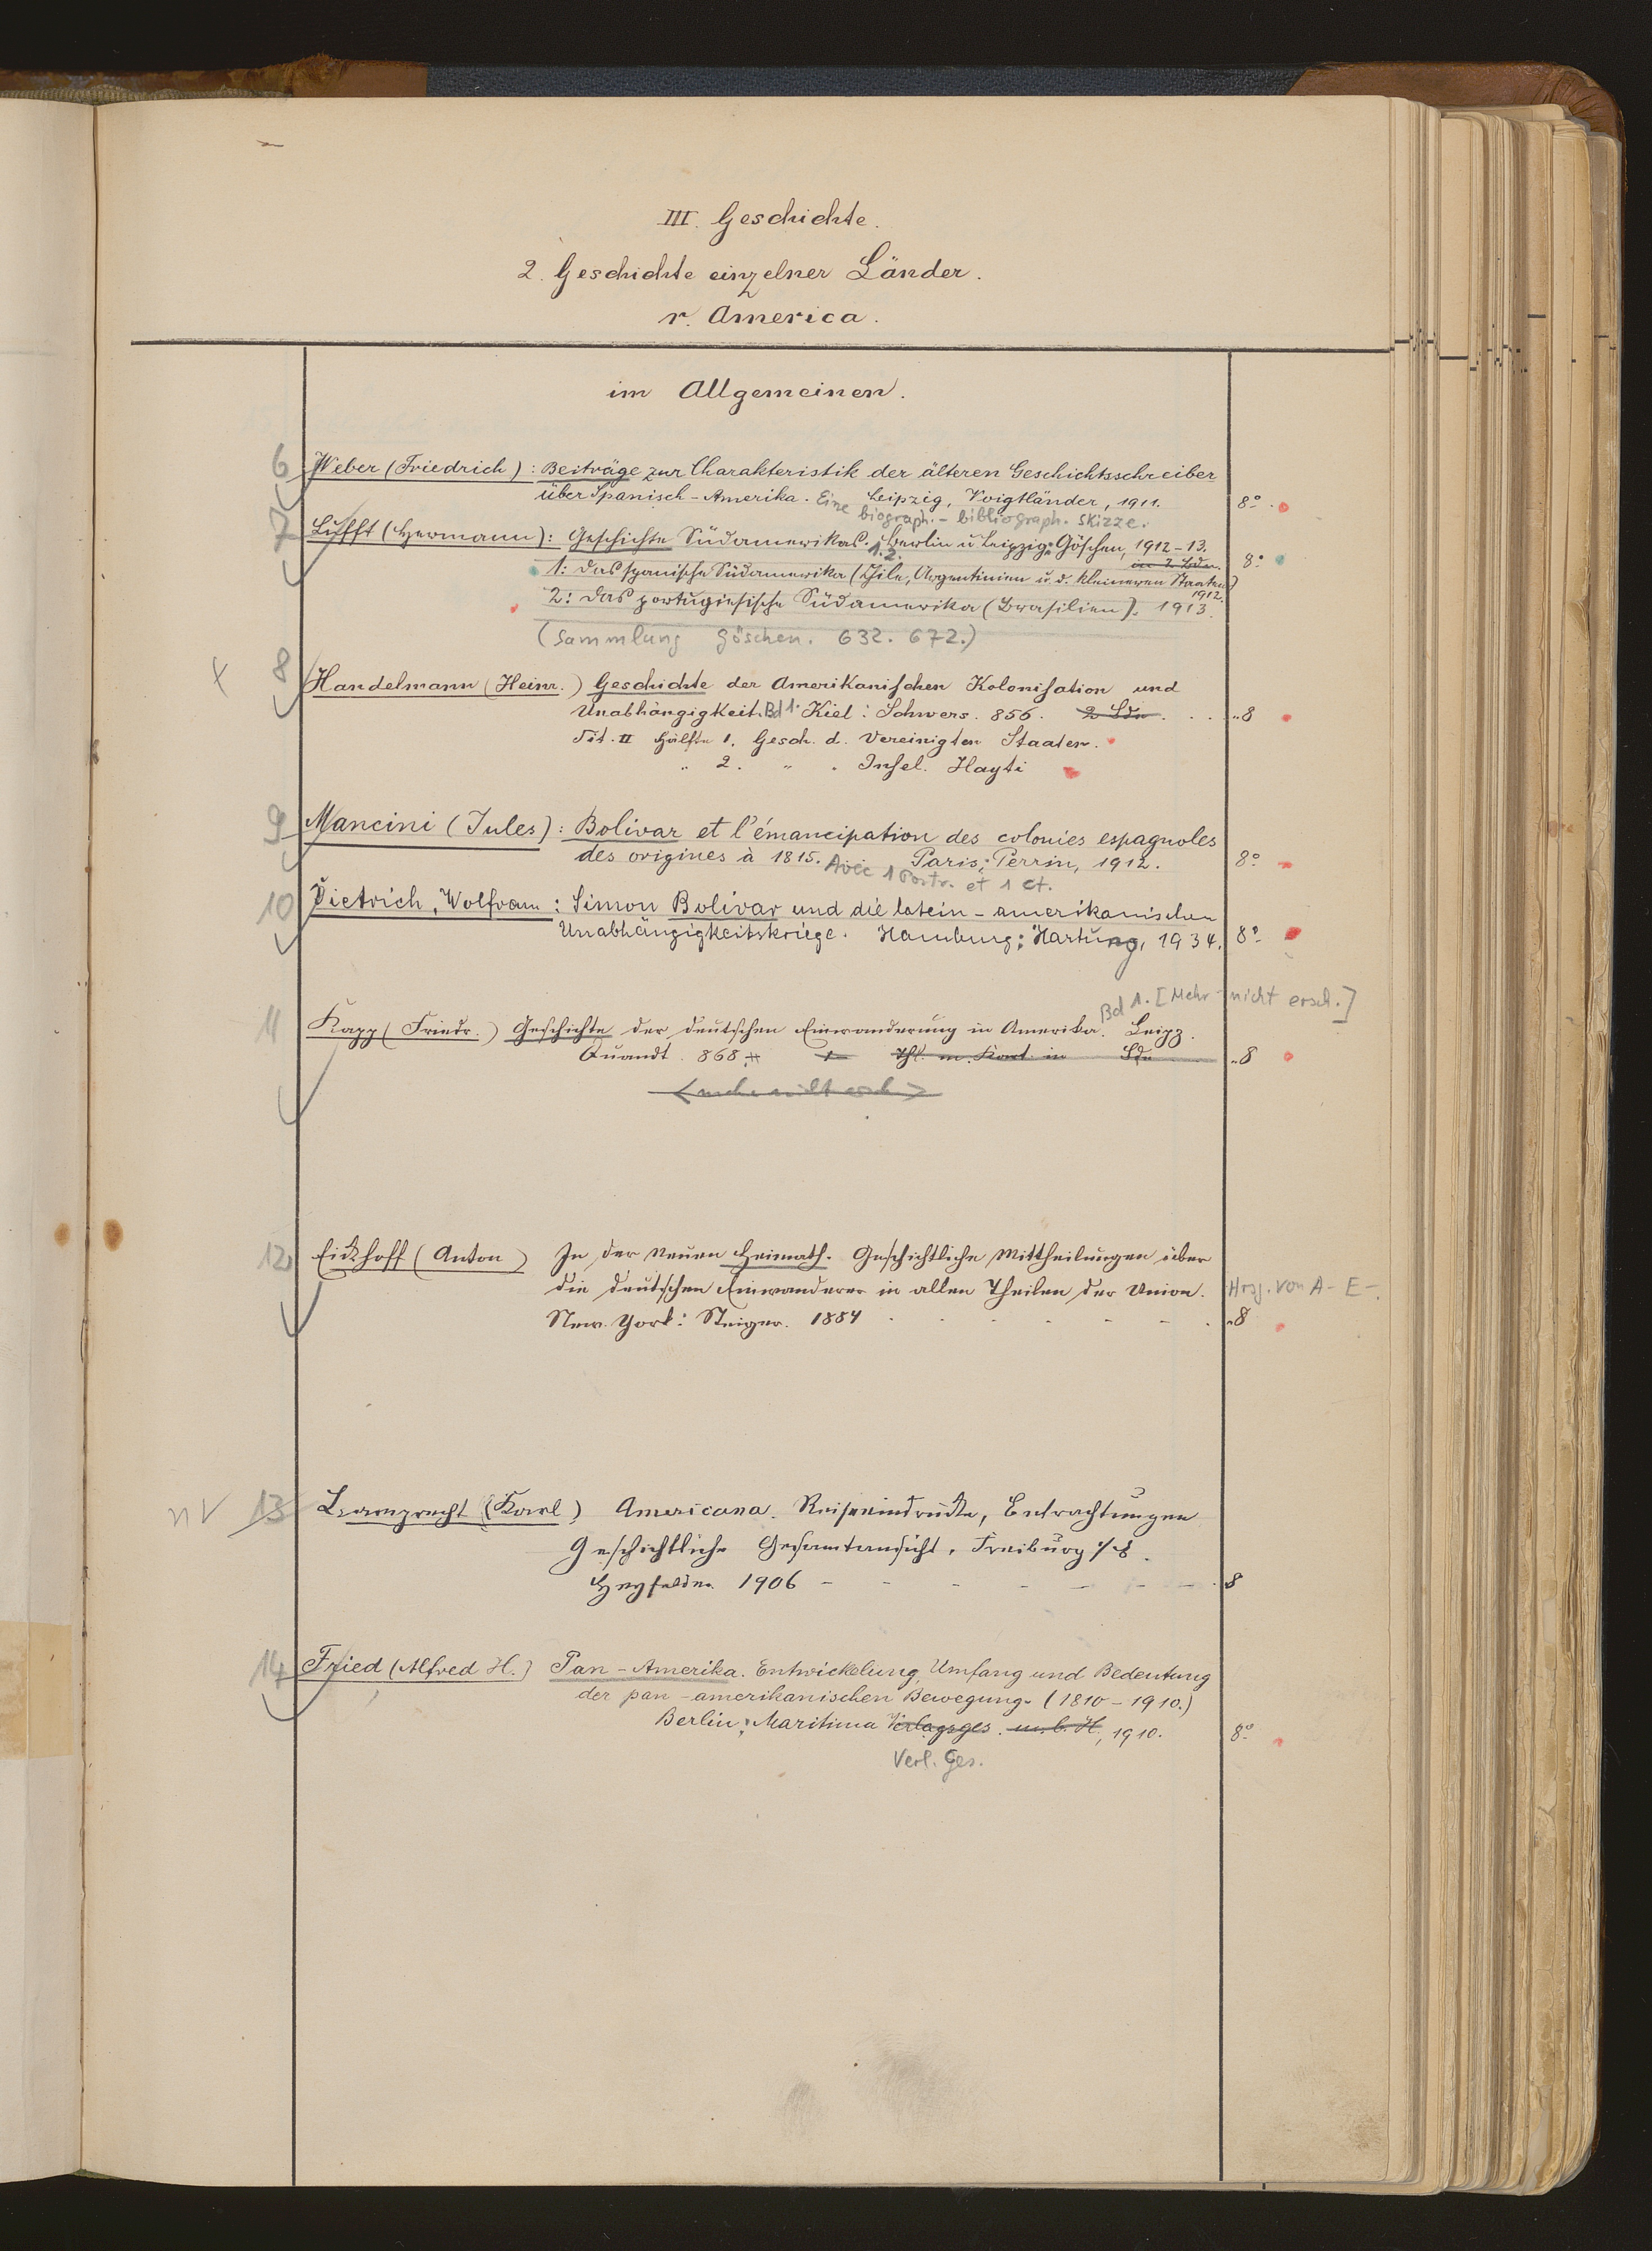 III. Geschichte.
2. Geschichte einzelner Länder.
r. America.
im Allgemeinen.
6 Weber (Friedrich): Beiträge zur Charakteristik der älteren Geschichtsschreiber
über Spanisch-Amerika. Eine Leipzig, Voigtländer, 1911. 8°.
biograph.-bibliograph. Skizze.
7 Lufft (Hermann): Geschichte Südamerikas. 1.2. Berlin u Leipzig: Göschen, 1912-13.
in 2 Bden. 8°
1: Das spanische Südamerika (Chile, Argentinien u. d. kleineren Staaten)
1912.
2: Das portugiesische Südamerika (Brasilien). 1913.
(Sammlung Göschen. 632. 672.)
8 Handelmann (Heinr.) Geschichte der Amerikanischen Kolonisation und
Unabhängigkeit. Bd 1. Kiel: Schwers. 856. 2 Bde. . . 8
Tit. II Hälfte 1. Gesch. d. Vereinigten Staaten.
" 2. " . Insel Hayti
9 Mancini (Jules): Bolivar et l'émancipation des colonies espagnoles
des origines à 1815. Paris: Perrin, 1912. 8°
Avec 1 Portr. et 1 ct.
10 Dietrich, Wolfram: Simon Bolivar und die latein-amerikanischen
Unabhängigkeitskriege. Hamburg: Hartung, 1934. 8°
Bd 1. [Mehr nicht ersch.]
11 Kapp (Friedr.) Geschichte der deutschen Einwanderung in Amerika. Leipz.
Quandt. 868. 1 Thl. m. Kart. in Bde 8
<mehr nicht ersch>
12 Eickhoff (Anton) In der neuen Heimath. Geschichtliche Mittheilungen über
die deutschen Einwanderer in allen Theilen der Union. Hrsg. von A- E-.
New-York: Steiger. 1884 . - - - - - . 8
nv 13 Lamprecht (Karl) Americana. Reiseeindrücke, Betrachtungen
Geschichtliche Gesamtansicht. Freiburg i/B.
Heyfelder. 1906 - - - - - - . 8
14 Fried (Alfred H.) Pan-Amerika. Entwickelung, Umfang und Bedeutung
der pan-amerikanischen Bewegung. (1810-1910.)
Berlin: Maritima Verlagsges. m.b.H., 1910. 8°
Verl. Ges.